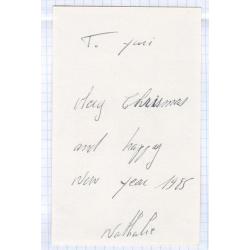 To Yuri
Mery Chrismas
and happy
New year 1985
Nathalie